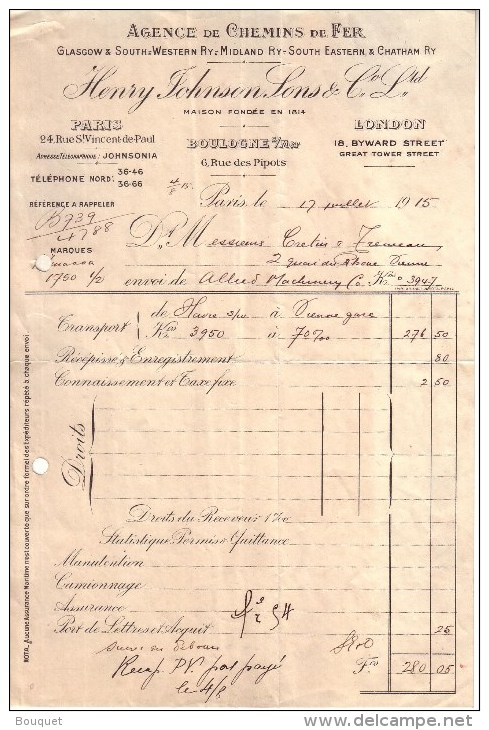 AGENCE DE CHEMINS DE FER
GLASGOW & SOUTH-WESTERN RY-MIDLAND RY-SOUTH EASTERN & CHATHAM RY
Henry Johnson Sons & Co Ltd
MAISON FONDÉE EN 1814
PARIS
24, Rue St Vincent-de-Paul
ADRESSE TÉLÉGRAPHIQUE: JOHNSONIA
TÉLÉPHONE NORD: 36-46
36-66
BOULOGNE S/Mer
6, Rue des Pipots
LONDON
18, BYWARD STREET
GREAT TOWER STREET
4/8 15
Paris, le 17 juillet 1915
RÉFÉRENCE A RAPPELER
B739
4788
Dt Messieurs Cretin &
2 quai du Rhone Vienne
MARQUES
8750 1/2
envoi de Allied Machinery Co Kos 3947
Transport
de Havre s/w à Vienne gare
Kos 3950 à 70 %o 276 50
Récépissé & Enregistrement 80
Connaissement et Taxe fixe 2 50
Droits
Droits du Receveur 1%o
Statistique Permis & Quittance
Manutention
Camionnage
Assurance
Port de Lettres et Acquit 25
Suivi en débours
Fcs 280 05
Récep PV pas payé
le 4/8
NOTA._ Aucune Assurance Maritime n'est couverte que sur ordre formel des Expéditeurs répété à chaque envoi.
Bouquet
www.delcampe.net